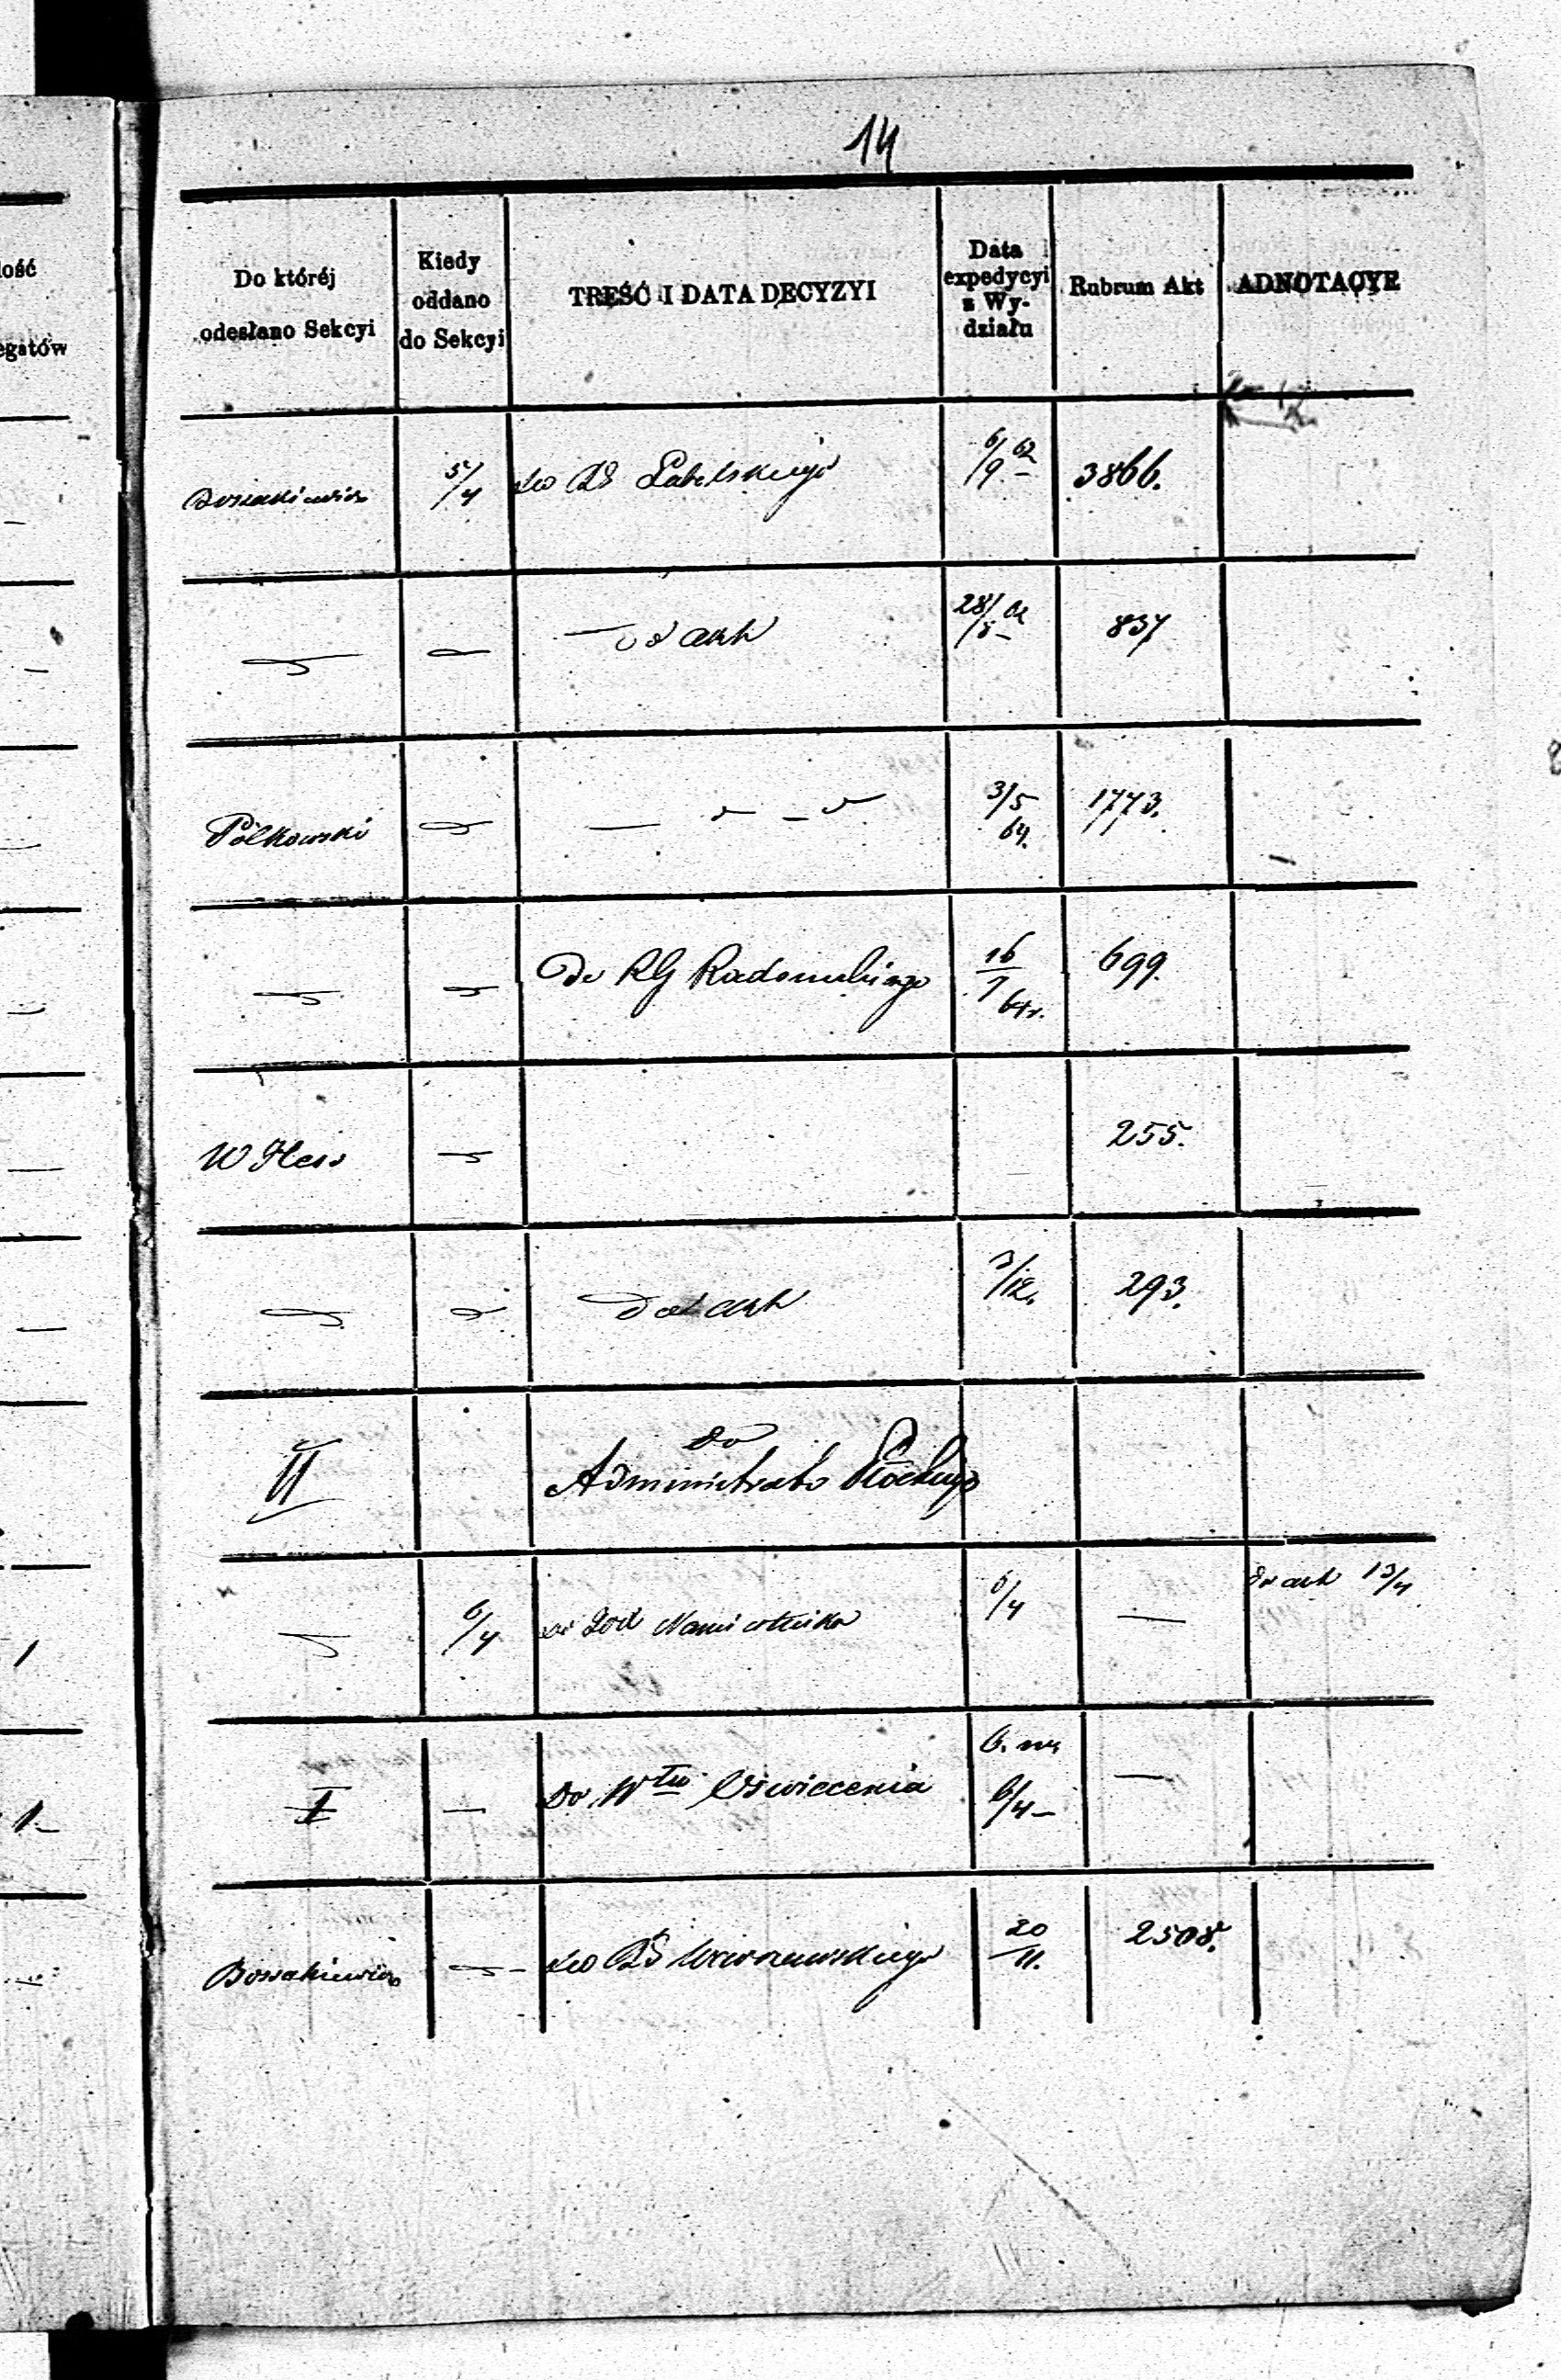 14
lość
egatów
Do któréj
odesłano Sekcyi
Kiedy
oddano
do Sekcyi
TREŚĆ I DATA DECYZYI
Data
expedycyi
z Wy-
działu
Rubrum Akt
ADNOTACYE
Bossakiewicz
5/4
do RG Lubelskiego
6/9 62
3866.
ad akt
28/8 62
837
Pólkowski
3/5
64.
1773.
Do RG Radomskiego
16
64 r.
699.
W Hess
255.
ad akt
3/12.
293.
II
do
Administrato Płockiego
6/4
Namiestnika
6/4
13/4
I
Do Wtu Oświecenia
6/4
Bossakiewicz
do RG Warszawskiego
20
11.
2508.
1
1